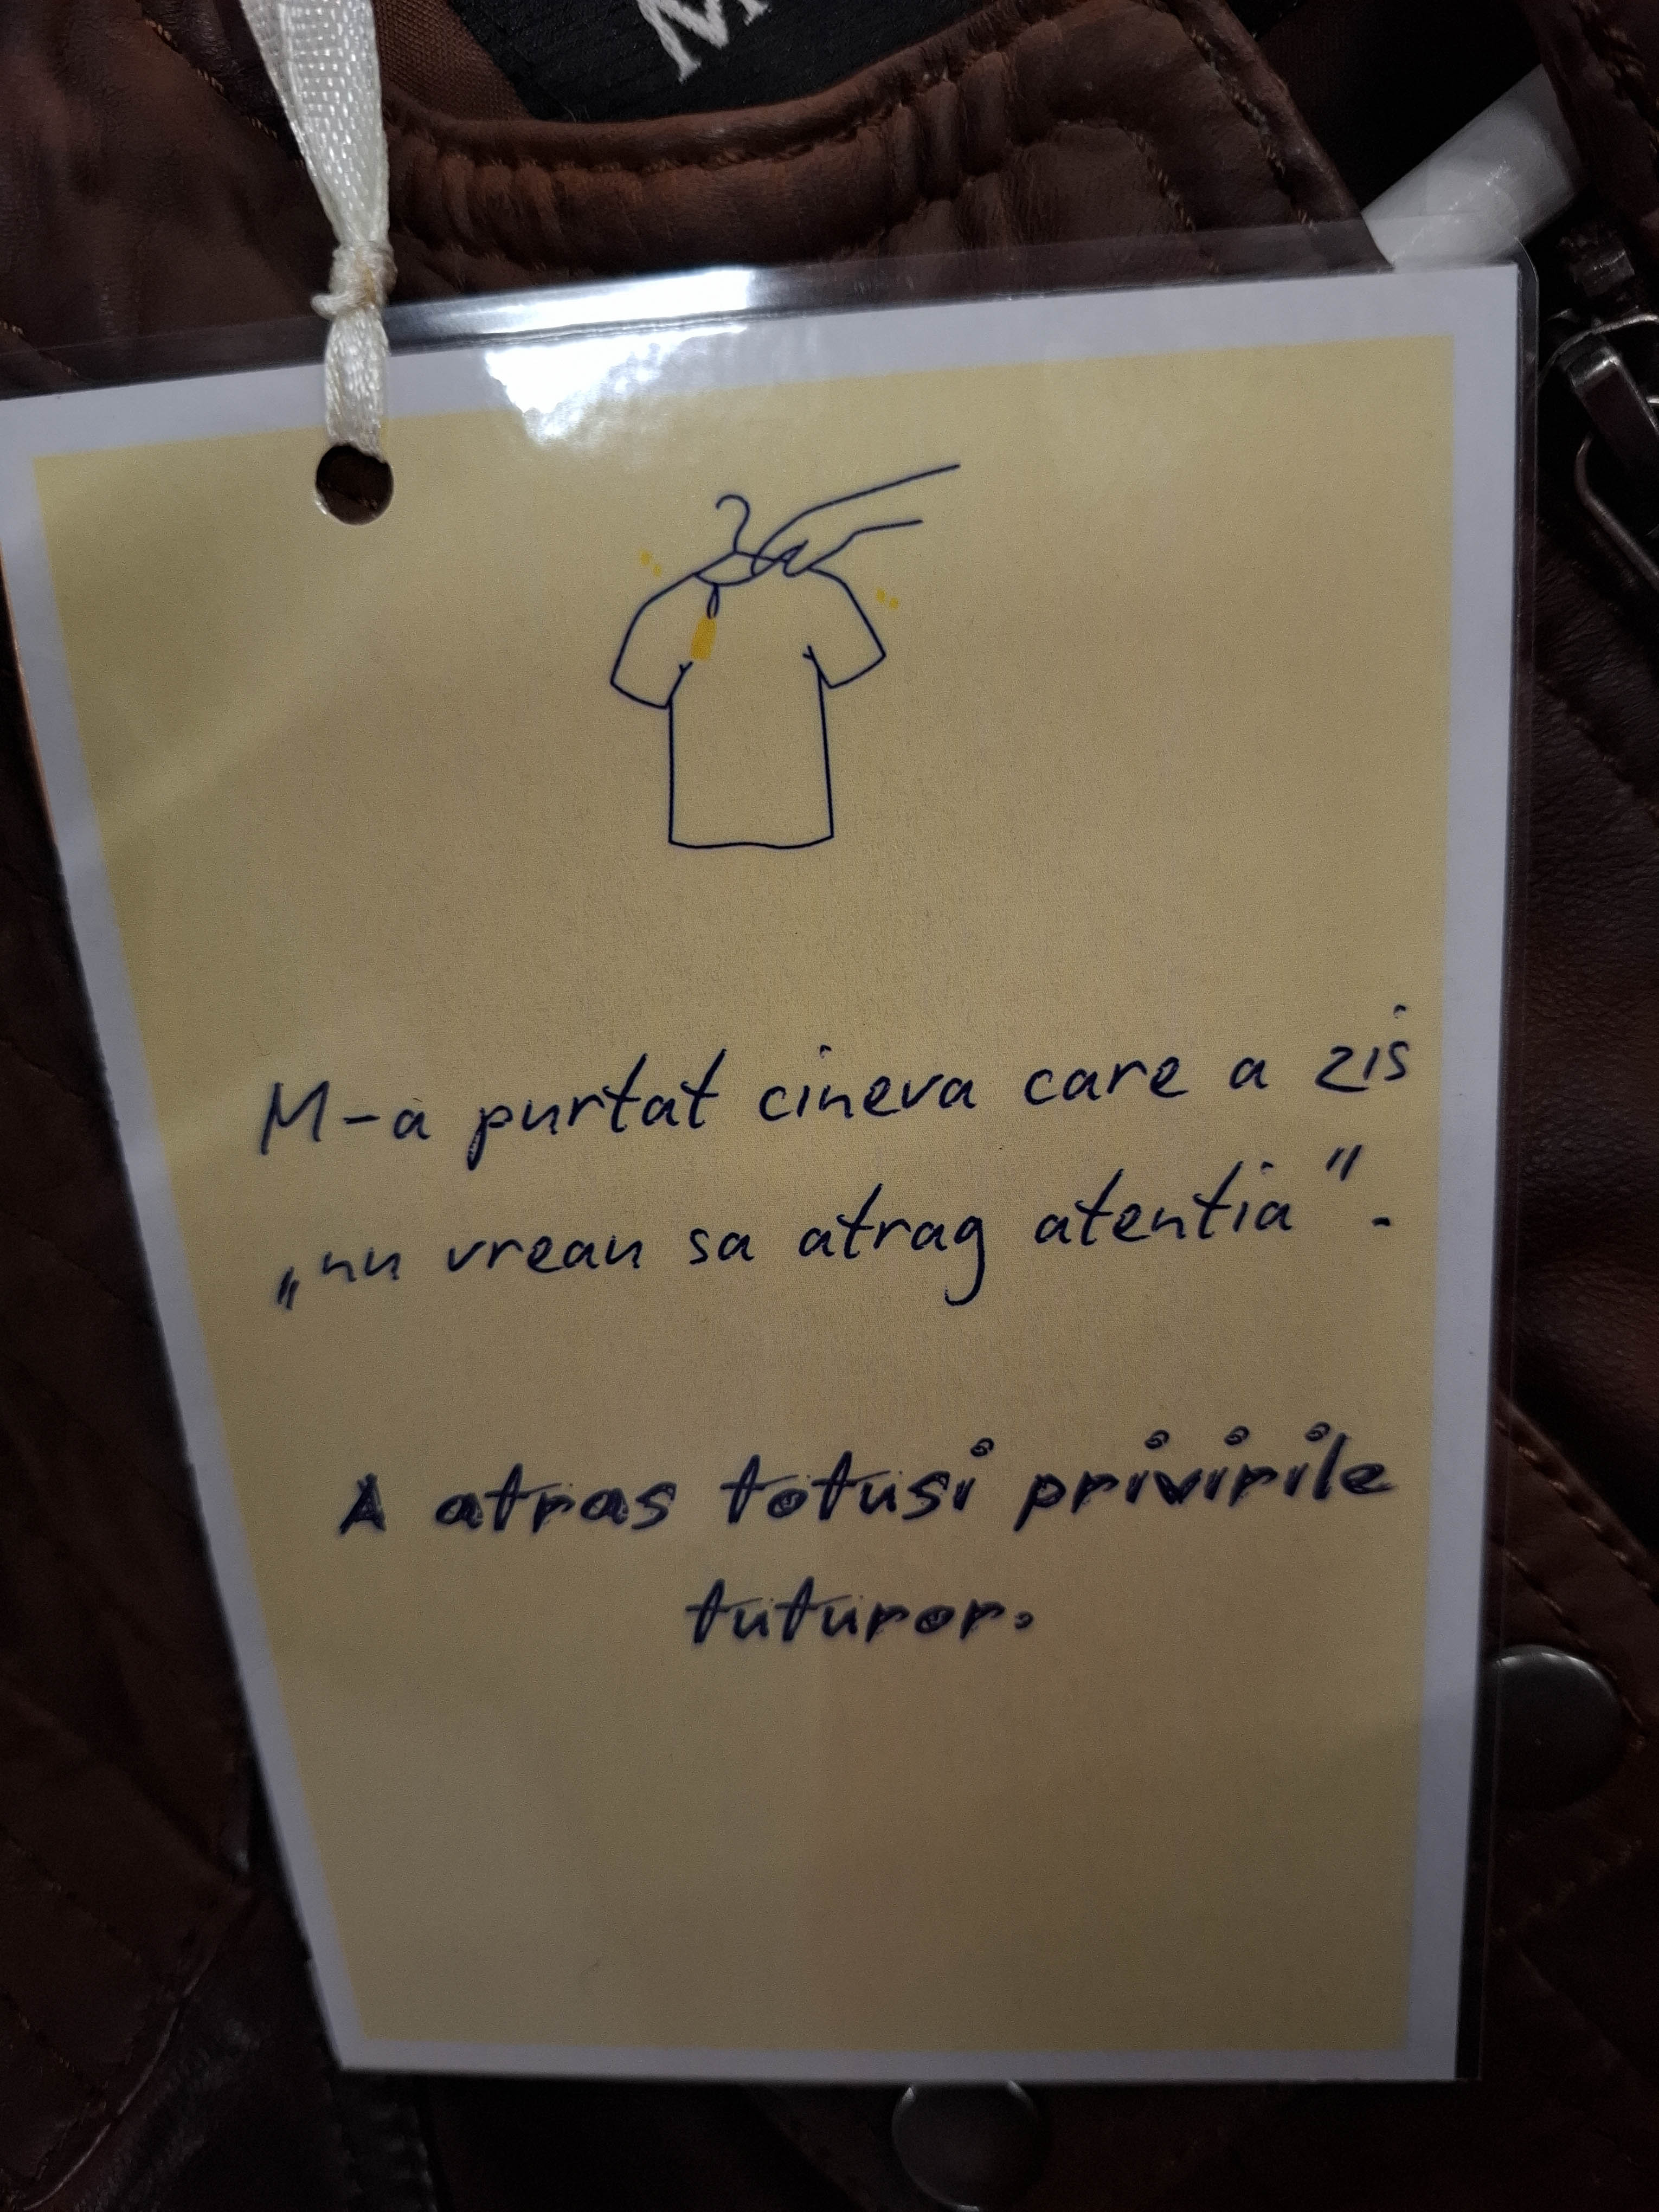 M
M-a purtat cineva care a zis
„nu vreau sa atrag atentia".
A atras totusi privirile
tuturor.